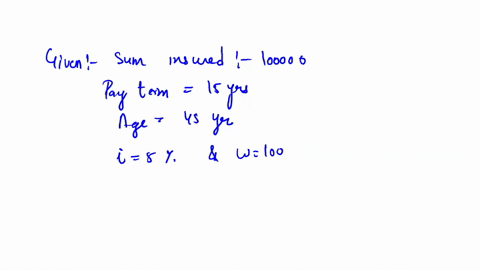 Given:- Sum insured :- 100000
Pay term = 15 yrs
Age = 45 yr
i = 8 % & w=100